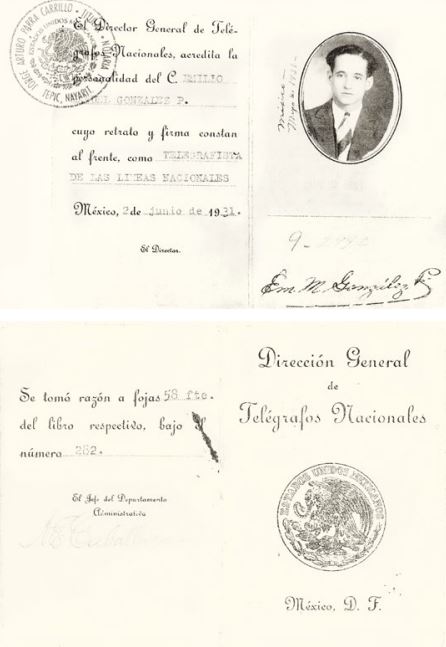 JORGE ARTURO PARRA CARRILLO
TEPIC, NAYARIT
El Director General de Telé-
grafos Nacionales, acredita la
personalidad del C. EMILIO
GONZALES P.
cuyo retrato y firma constan
al frente, como TELEGRAFISTA
DE LAS LINEAS NACIONALES
México, 2 de junio de 1931.
El Director.
México
9-
Em. M. González P.
Se tomó razón a fojas 58 fte.
del libro respectivo, bajo el
número 262.
El Jefe del Departamento
Administrativo
Dirección General
de
Telégrafos Nacionales
ESTADOS UNIDOS MEXICANOS
México, D. F.